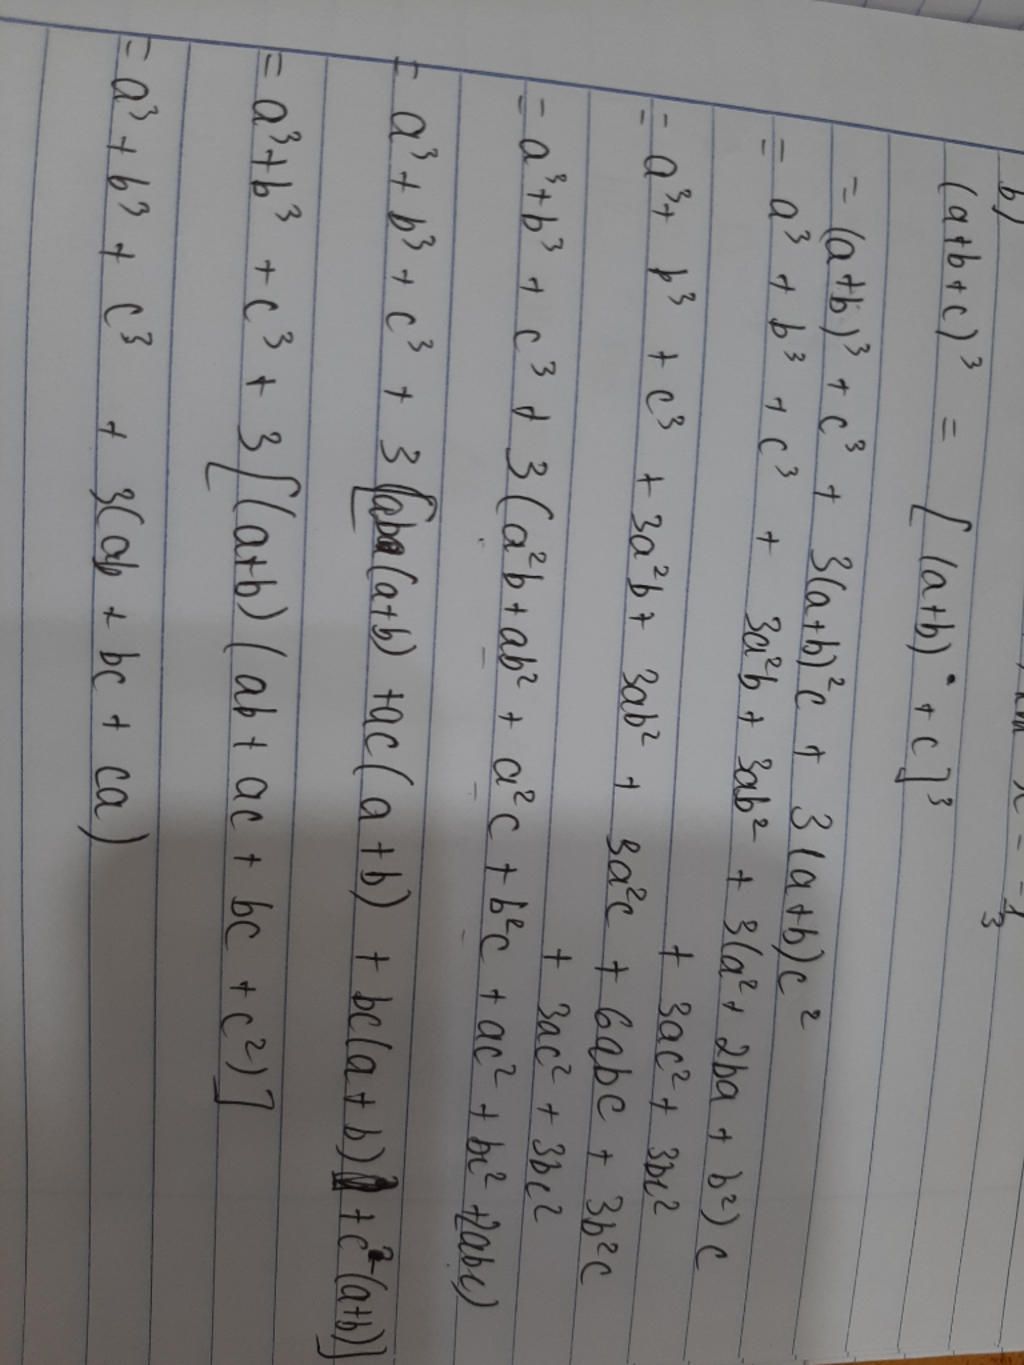 b)
x = -1/3
(a+b+c)³ = [(a+b) + c]³
= (a+b)³ + c³ + 3(a+b)²c + 3(a+b)c²
= a³ + b³ + c³ + 3a²b + 3ab² + 3(a² + 2ba + b²)c
+ 3ac² + 3bc²
= a³ + b³ + c³ + 3a²b + 3ab² + 3a²c + 6abc + 3b²c
+ 3ac² + 3bc²
= a³ + b³ + c³ + 3(a²b + ab² + a²c + b²c + ac² + bc² + 2abc)
= a³ + b³ + c³ + 3[ab(a+b) + ac(a+b) + bc(a+b) + c²(a+b)]
= a³ + b³ + c³ + 3[(a+b)(ab + ac + bc + c²)]
= a³ + b³ + c³ + 3(ab + bc + ca)